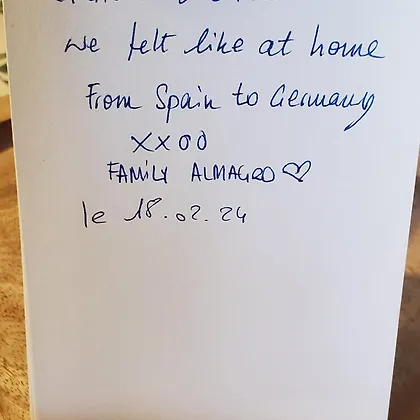 we felt like at home
From Spain to Germany
xxoo
FAMILY ALMAGRO
le 18.02.24